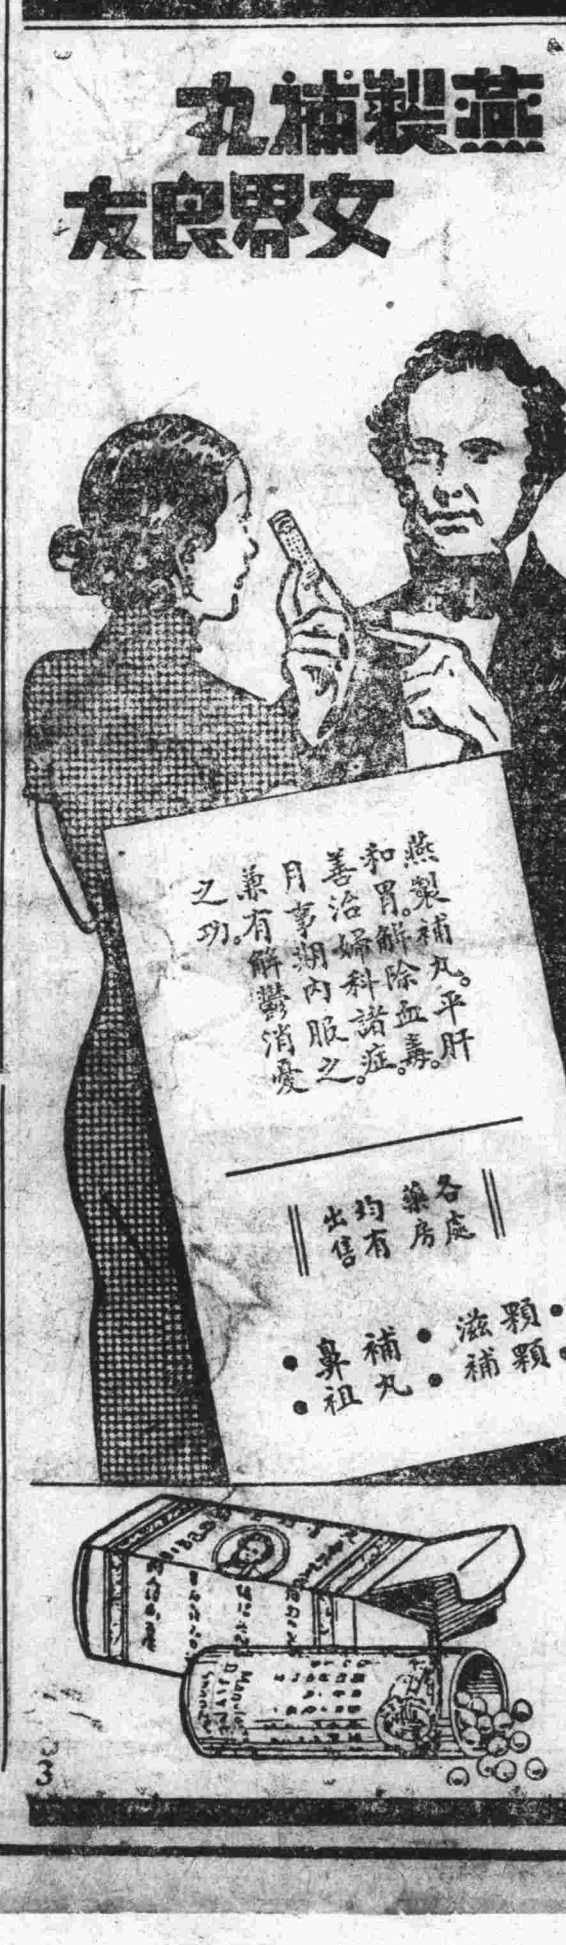 燕製補丸
女界良友
燕製補丸。平肝
和胃。解除血毒。
善治婦科諸症。
月事潮內服之。
兼有解鬱消憂
之功。
各處
藥房
均有
出售
顆顆
滋補
補丸
鼻祖
33